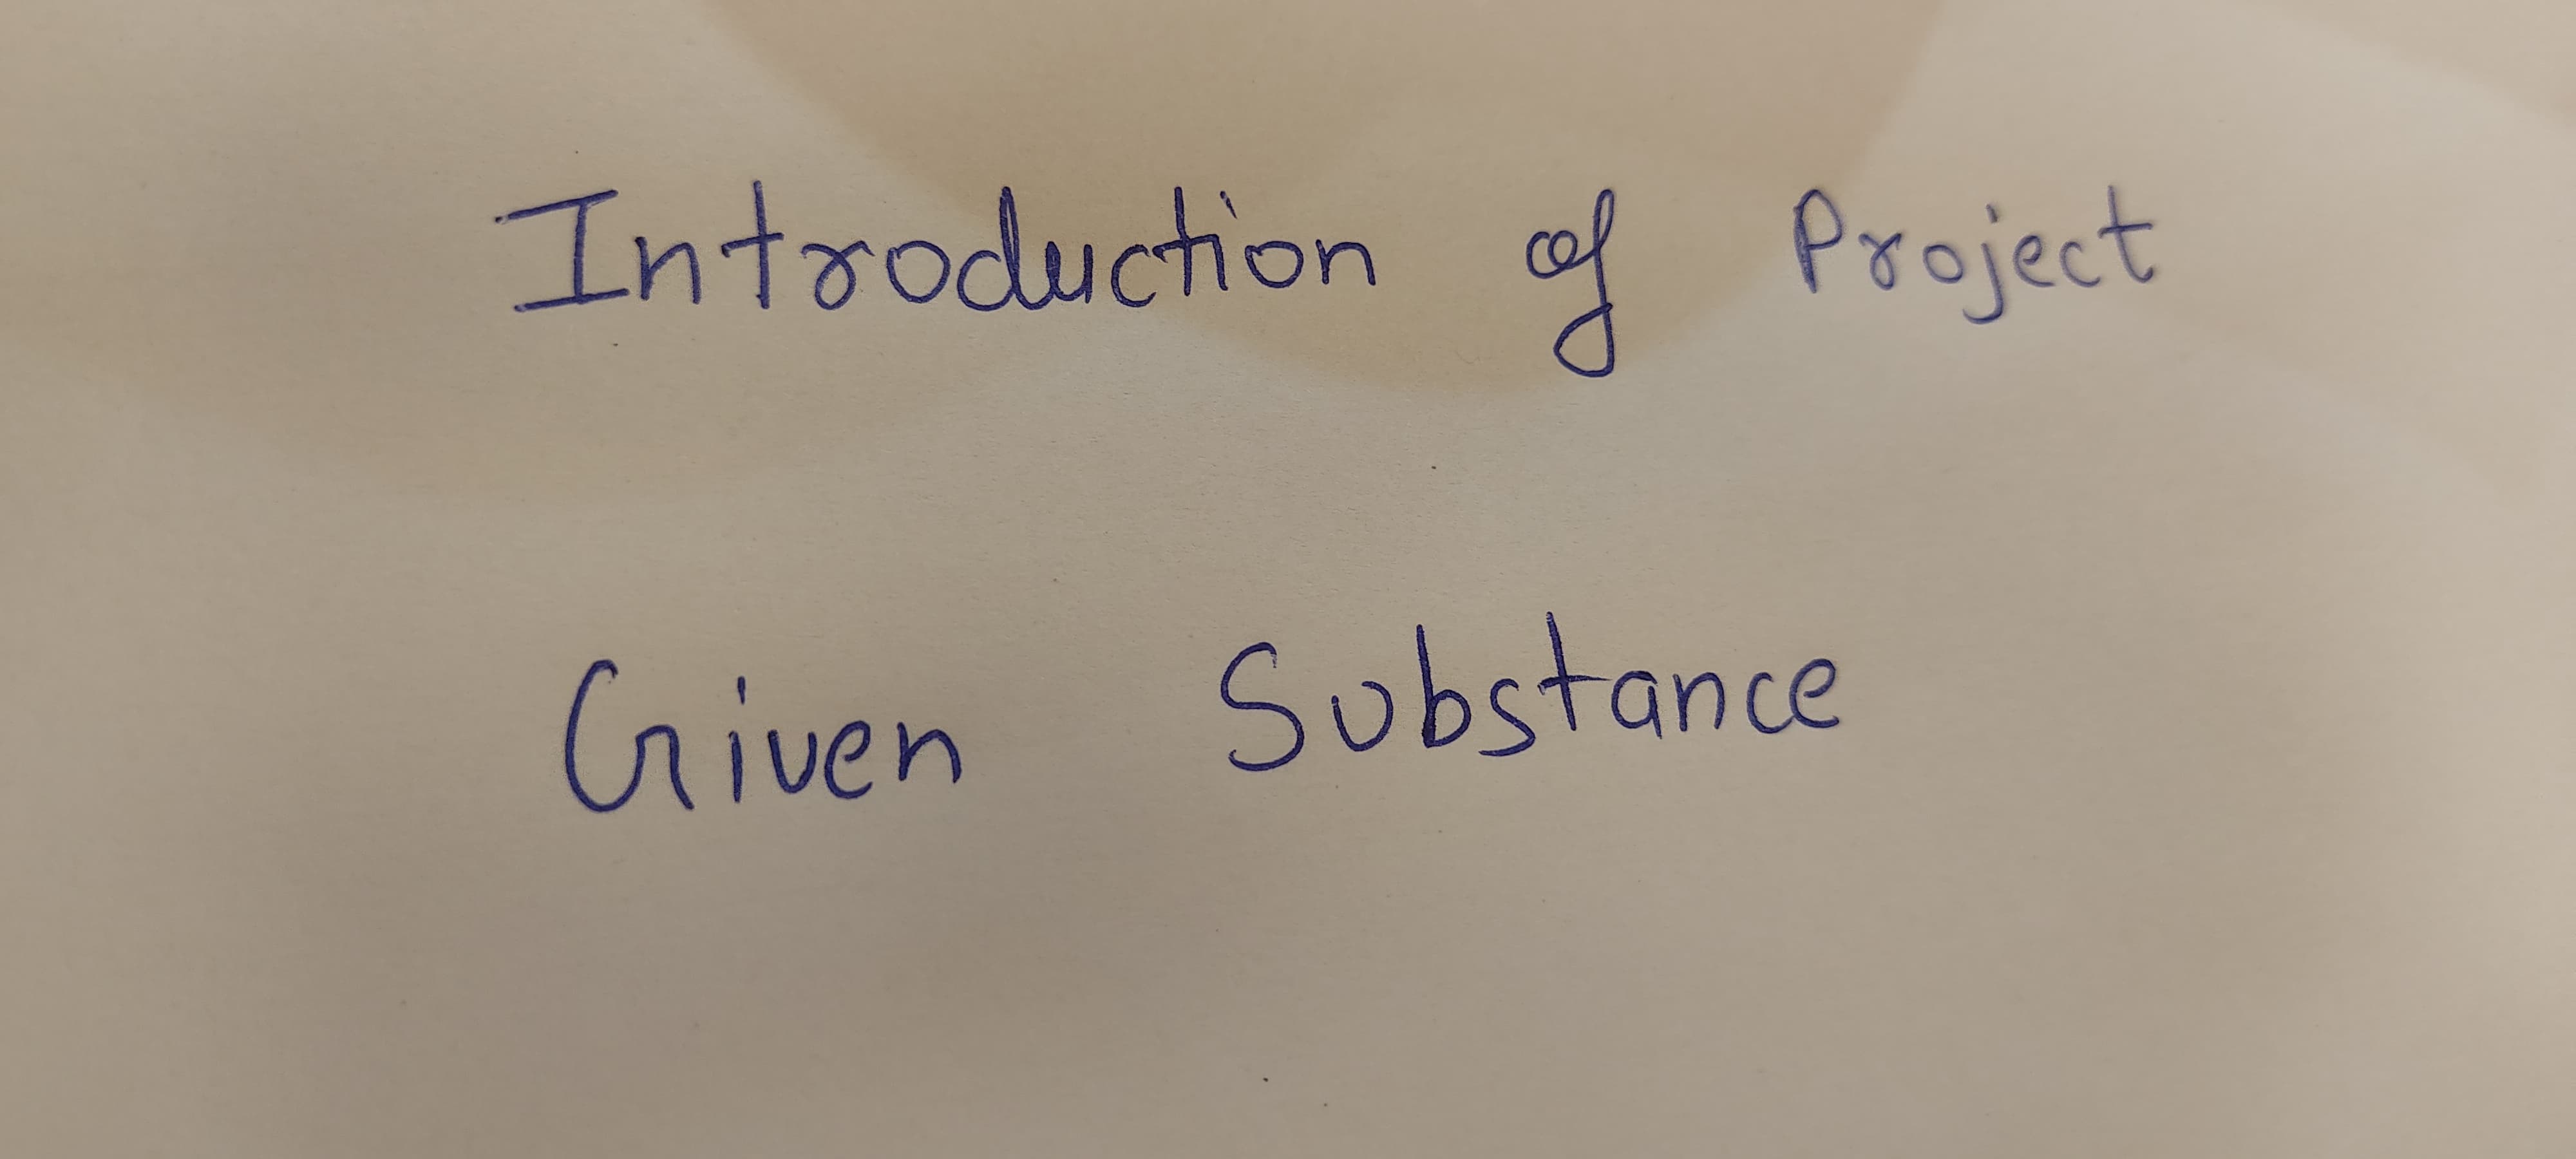 Introduction of Project
Given Substance